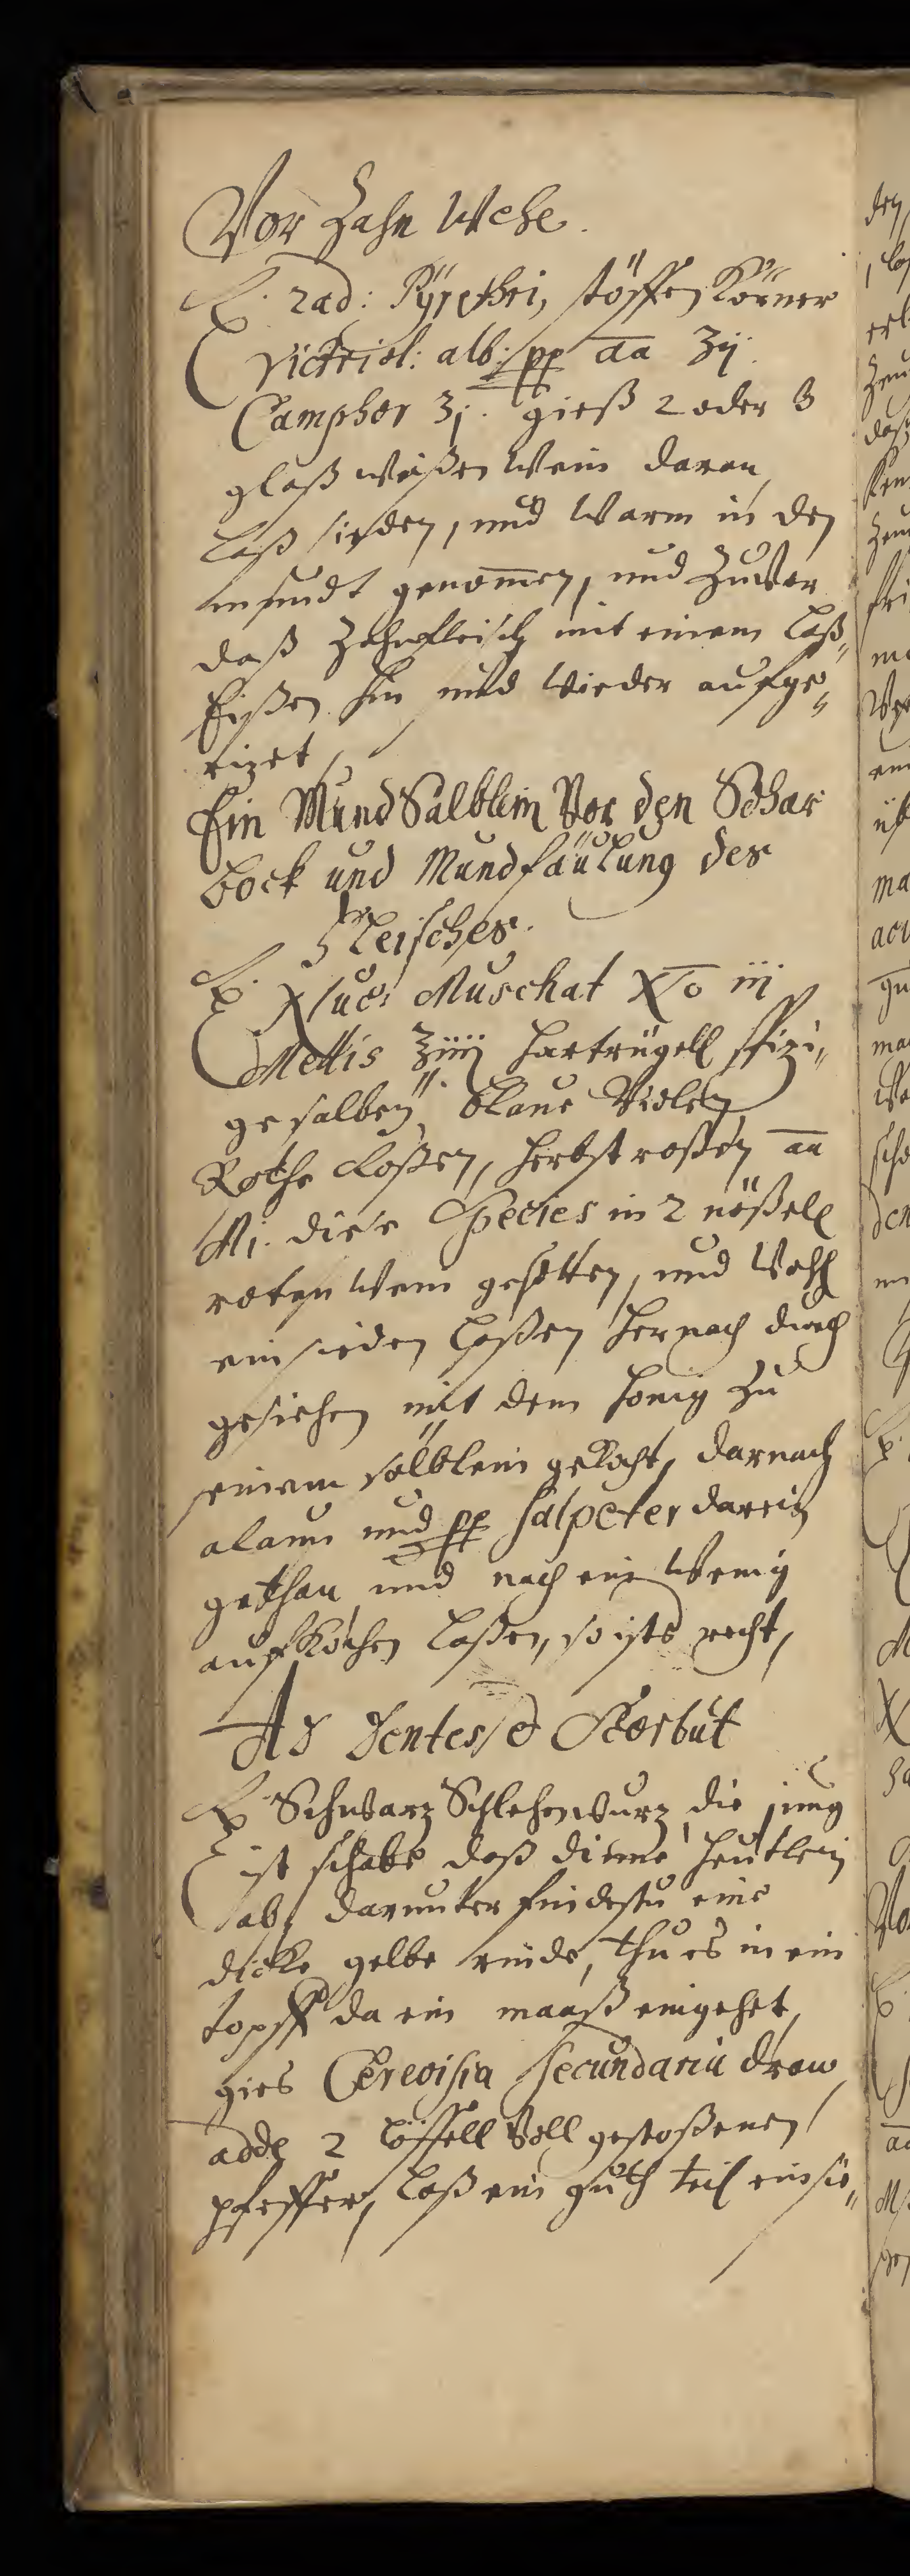 Vor Zahn Wehe.
℞. rad: Pÿrethri, stöffen Körner
Victriol: alb: pp aa ʒij.
Camphor ʒj. gieß 2 oder 3
glaß weißen Wein daran,
laß sieden, und warm in den
mundt genom̄en, und Zuvor
daß Zahnfleisch mit einem laß„
Eißen hin und wieder aufge„
rizet,
Ein Mund Sälblein Vor den Schar
bock und Mundfäulung des
Fleisches.
℞. Nuc: Muschat No iii
Mellis ℥iiij hartrügell spizi„
ge salbeÿ, blaue Violen,
Rothe Roßen, herbst roßen aa
Mj. diese Species in 2 nößell
roten Wein gesotten, und Wohl
einsieden laßen hernach durch
gesiehen mit dem honig zu
einem sälblein gekocht, darnach
alaun und pp salpeter darein
gethan, und noch ein wenig
aufkochen laßen, so ists recht,
Ad Dentes, et Scorbut
℞ Schwarz Schlehenwurz, die jung
ist schabe daß dinne heutlein
ab, darunter findestu eine
dicke gelbe rinde, thu es in ein
topff da ein maaß eingehet,
gies Cerevisia secundaria dran
adde 2 löffell Voll gestoßenen
pfeffer, laß ein guth teil einsie„